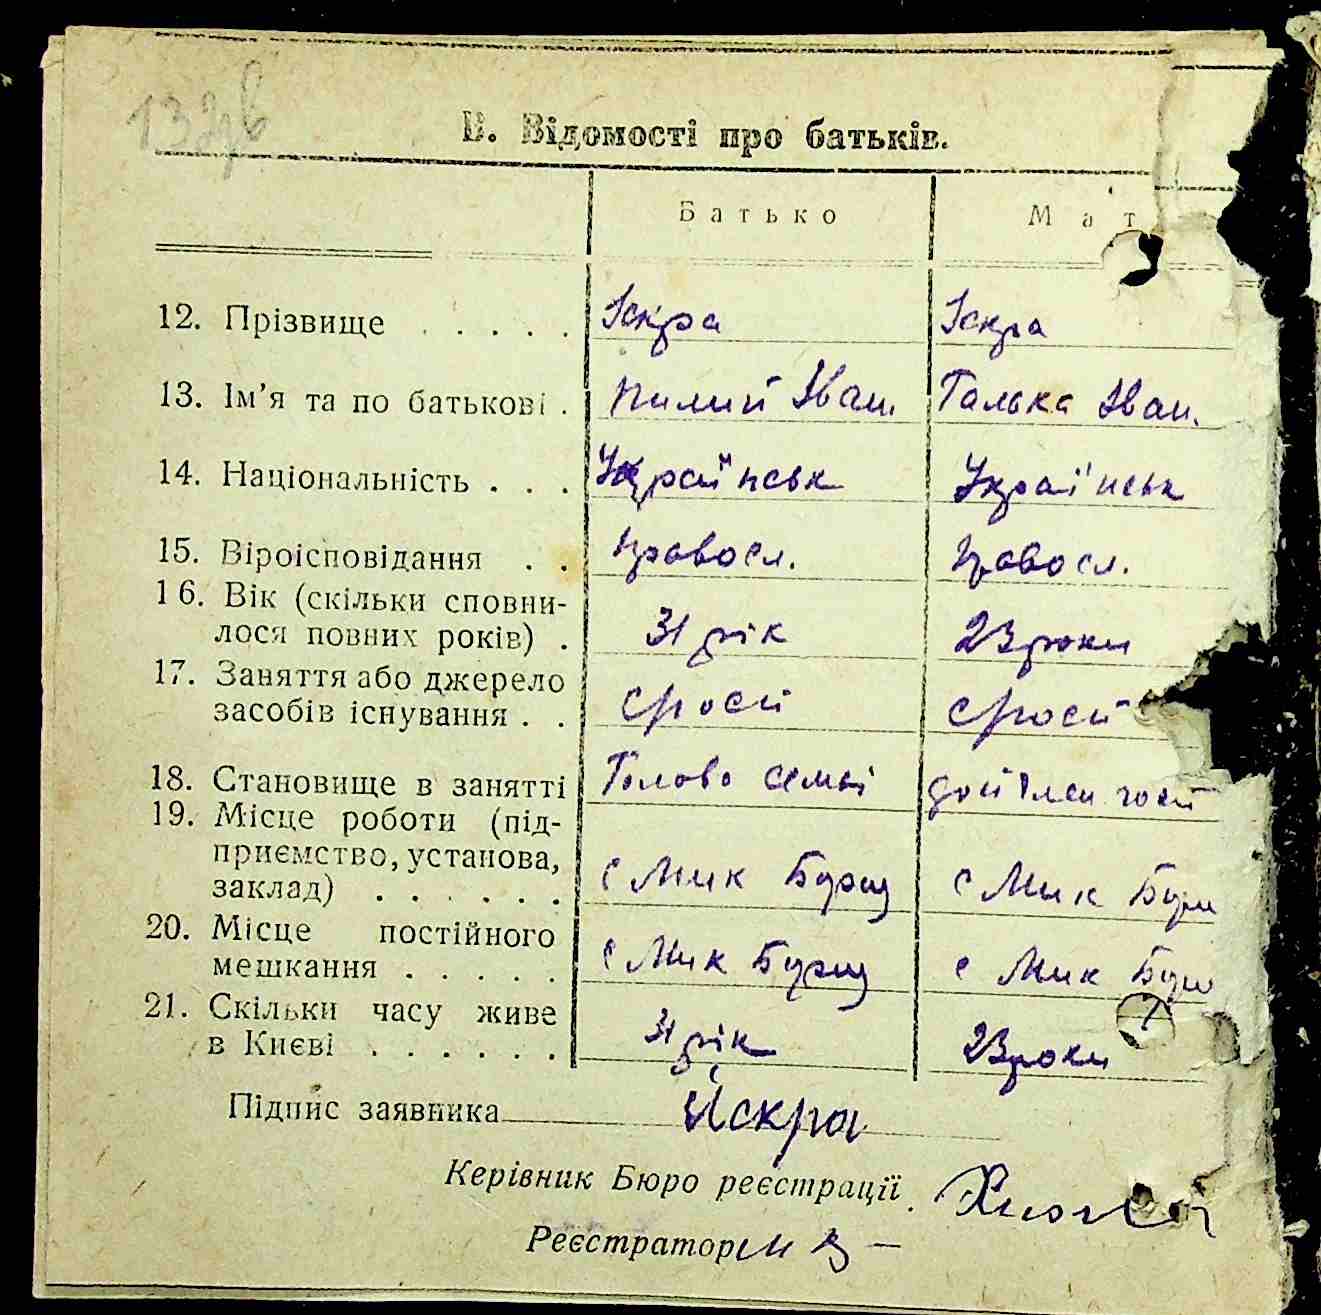 132зв
В. Відомості про батьків.
Батько Мат
12. Прізвище . . . . . Іскра Іскра
13. Ім’я та по батькові . Пилип Іван. Галька Іван.
14. Національність . . . Українськ Українськ
15. Віроісповідання . . правосл. правосл.
16. Вік (скільки сповни-
лося повних років) . 31 рік 23 роки
17. Заняття або джерело
засобів існування . .
18. Становище в занятті Голова семьі
19. Місце роботи (під-
приємство, установа,
заклад) . . . . . . с Мик Борщ с Мик Борщ
20. Місце постійного
мешкання . . . . . с Мик Борщ с Мик Борщ
21. Скільки часу живе
в Києві . . . . . . 31 рік 23 роки
Підпис заявника Іскра
Керівник Бюро реєстрації
Реєстратор